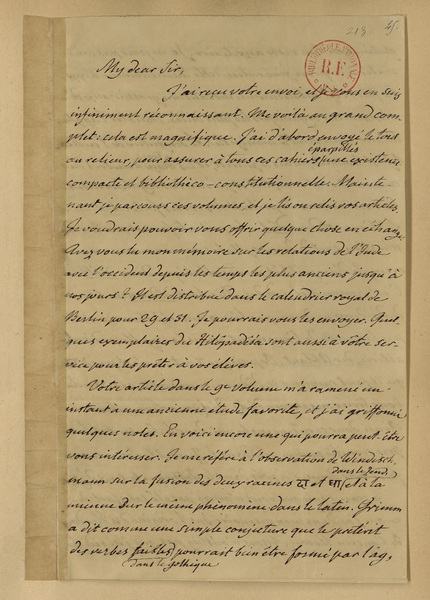 218 25.
BIBLIOTHÈQUE NATIONALE
R.F.
My dear Sir,
J'ai reçu votre envoi, et je vous en suis
infiniment réconnaissant. Me voilà au grand com-
plet: cela est magnifique. J'ai d'abord envoyé le tout
au relieur, pour assurer à tous ces cahiers éparpillés une existence
compacte et bibliothéco-constitutionnelle. Mainte-
nant je parcours ces volumes, et je lis ou relis vos articles.
Je voudrais pouvoir vous offrir quelque chose en échange.
Avez vous lu mon mémoire sur les relations de l'Inde
avec l'occident depuis les temps les plus anciens jusqu'à
nos jours? Il est distribué dans le calendrier royal de
Berlin pour 29 et 31. Je pourrais vous les envoyer. Quel-
ques exemplaires du Hitôpadêsa sont aussi à vôtre ser-
vice pour les prêter à vos élèves.
Votre article dans le 9e volume m'a ramené un
instant à une ancienne étude favorite, et j'ai griffonné
quelques notes. En voici encore une qui pourra peut-être
vous intéresser. Je me réfère à l'observation de Windisch-
mann sur la fusion des deux racines दा et धा dans le Zend, et à la
mienne sur le même phénomène dans le latin. Grimm
a dit comme une simple conjecture que le prétérit
des verbes faibles dans le Gothique pourrait bien être formé par l'ag,